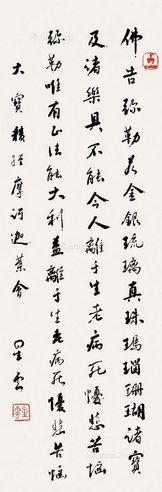 佛告弥勒若金銀琉璃真珠瑪瑙珊瑚諸寶
及諸樂具不能令人離于生老病死憂愁苦惱
弥勒唯有正法能大利益離于生老病死憂悲苦惱
大寶積經摩訶迦葉會 星雲